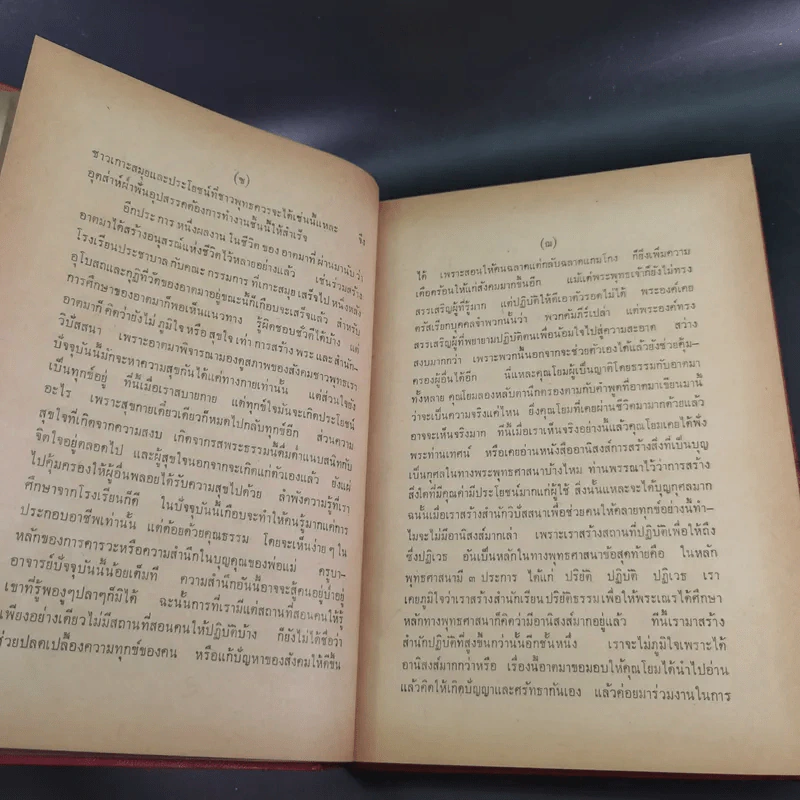 (ข)
ชาวเกาะสมุยและประโยชน์ที่ชาวพุทธควรจะได้เช่นนี้แหละ จึง
อุตส่าห์ฝ่าฟันอุปสรรคต้องการทำงานชิ้นนี้ให้สำเร็จ
อีกประการหนึ่งผลงานในชีวิตของอาตมาที่ผ่านมานับว่า
อาตมาได้สร้างอนุสรณ์แห่งชีวิตไว้หลายอย่างแล้ว เช่นร่วมสร้าง
โรงเรียนประชาบาลกับคณะกรรมการที่เกาะสมุยเสร็จไปหนึ่งหลัง
อุโบสถและกุฏิที่วัดของอาตมาอยู่ขณะนี้ก็เกือบจะเสร็จแล้ว สำหรับ
การศึกษาของอาตมาก็พอเห็นแนวทาง รู้ผิดชอบชั่วดีได้บ้าง แต่
อาตมาก็คิดว่ายังไม่ภูมิใจหรือสุขใจเท่าการสร้างพระและสำนัก-
วิปัสสนา เพราะอาตมาพิจารณามองดูสภาพของสังคมชาวพุทธเรา
ปัจจุบันนี้มักจะหาความสุขกันได้แต่ทางกายเท่านั้น แต่ส่วนใจยัง
เป็นทุกข์อยู่ ที่นี้เมื่อเราสบายกาย แต่ทุกข์ใจมันจะเกิดประโยชน์
อะไร เพราะสุขกายเดี๋ยวเดียวก็หมดไปกลับทุกข์อีก ส่วนความ
สุขใจที่เกิดจากความสงบ เกิดจากรสพระธรรมนี้ดื่มด่ำแนบสนิทกับ
จิตใจอยู่ตลอดไป และผู้สุขใจนอกจากจะเกิดแก่ตัวเองแล้ว ยังแผ่
ไปคุ้มครองให้ผู้อื่นพลอยได้รับความสุขไปด้วย ลำพังความรู้ที่เรา
ศึกษาจากโรงเรียนก็ดี ในปัจจุบันนี้เกือบจะทำให้คนรู้มากแต่การ
ประกอบอาชีพเท่านั้น แต่ด้อยด้วยคุณธรรม โดยจะเห็นง่าย ๆ ใน
หลักของการคารวะหรือความสำนึกในบุญคุณของพ่อแม่ ครูบา-
อาจารย์ปัจจุบันนี้น้อยเต็มที ความสำนึกอันนี้อาจจะสู้คนอยู่ป่าอยู่
เขาที่รู้พองูๆปลาๆก็มิได้ ฉะนั้นการที่เรามีแต่สถานที่สอนคนให้รู้
เพียงอย่างเดียวไม่มีสถานที่สอนคนให้ปฏิบัติบ้าง ก็ยังไม่ได้ชื่อว่า
ช่วยปลดเปลื้องความทุกข์ของคน หรือแก้ปัญหาของสังคมให้ดีขึ้น
(ค)
ได้ เพราะสอนให้คนฉลาดแต่กลับฉลาดแกมโกง ก็ยิ่งเพิ่มความ
เดือดร้อนให้แก่สังคมมากขึ้นอีก แม้แต่พระพุทธเจ้าก็ยังไม่ทรง
สรรเสริญผู้ที่รู้มาก แต่ปฏิบัติให้ดีเอาตัวรอดไม่ได้ พระองค์เคย
ตรัสเรียกบุคคลจำพวกนั้นว่า พวกคัมภีร์เปล่า แต่พระองค์ทรง
สรรเสริญผู้ที่พยายามปฏิบัติตนเพื่อน้อมใจไปสู่ความสะอาด สว่าง
สงบมากกว่า เพราะพวกนี้นอกจากจะช่วยตัวเองได้แล้วยังช่วยคุ้ม-
ครองผู้อื่นได้อีก นี่แหละคุณโยมผู้เป็นญาติโดยธรรมกับอาตมา
ทั้งหลาย คุณโยมลองหลับตานึกตรองตามกับคำพูดที่อาตมาเขียนมานี้
ว่าจะเป็นความจริงแค่ไหน ยิ่งคุณโยมที่เคยผ่านชีวิตมามากด้วยแล้ว
อาจจะเห็นจริงมาก ที่นี้เมื่อเราเห็นจริงอย่างนี้แล้วคุณโยมเคยได้ฟัง
พระท่านเทศน์ หรือเคยอ่านหนังสืออานิสงส์การสร้างสิ่งที่เป็นบุญ
เป็นกุศลในทางพระพุทธศาสนาบ้างไหม ท่านพรรณาไว้ว่าการสร้าง
สิ่งใดที่มีคุณค่ามีประโยชน์มากแก่ผู้ใช้ สิ่งนั้นแหละจะได้บุญกุศลมาก
ฉนั้นเมื่อเราสร้างสำนักวิปัสสนาเพื่อช่วยคนให้คลายทุกข์อย่างนี้ทำ-
ไมจะไม่มีอานิสงส์มากเล่า เพราะเราสร้างสถานที่ปฏิบัติเพื่อให้ถึง
ซึ่งปฏิเวธ อันเป็นหลักในทางพุทธศาสนาข้อสุดท้ายคือ ในหลัก
พุทธศาสนามี ๓ ประการ ได้แก่ ปริยัติ ปฏิบัติ ปฏิเวธ เรา
เคยภูมิใจว่าเราสร้างสำนักเรียนปริยัติธรรมเพื่อให้พระเณรได้ศึกษา
หลักทางพุทธศาสนาก็คิดว่ามีอานิสงส์มากอยู่แล้ว ทีนี้เรามาสร้าง
สำนักปฏิบัติที่สูงขึ้นกว่านั้นอีกชั้นหนึ่ง เราจะไม่ภูมิใจเพราะได้
อานิสงส์มากกว่าหรือ เรื่องนี้อาตมาขอมอบให้คุณโยมได้นำไปอ่าน
แล้วคิดให้เกิดปัญญาและศรัทธากันเอง แล้วค่อยมาร่วมงานในการ